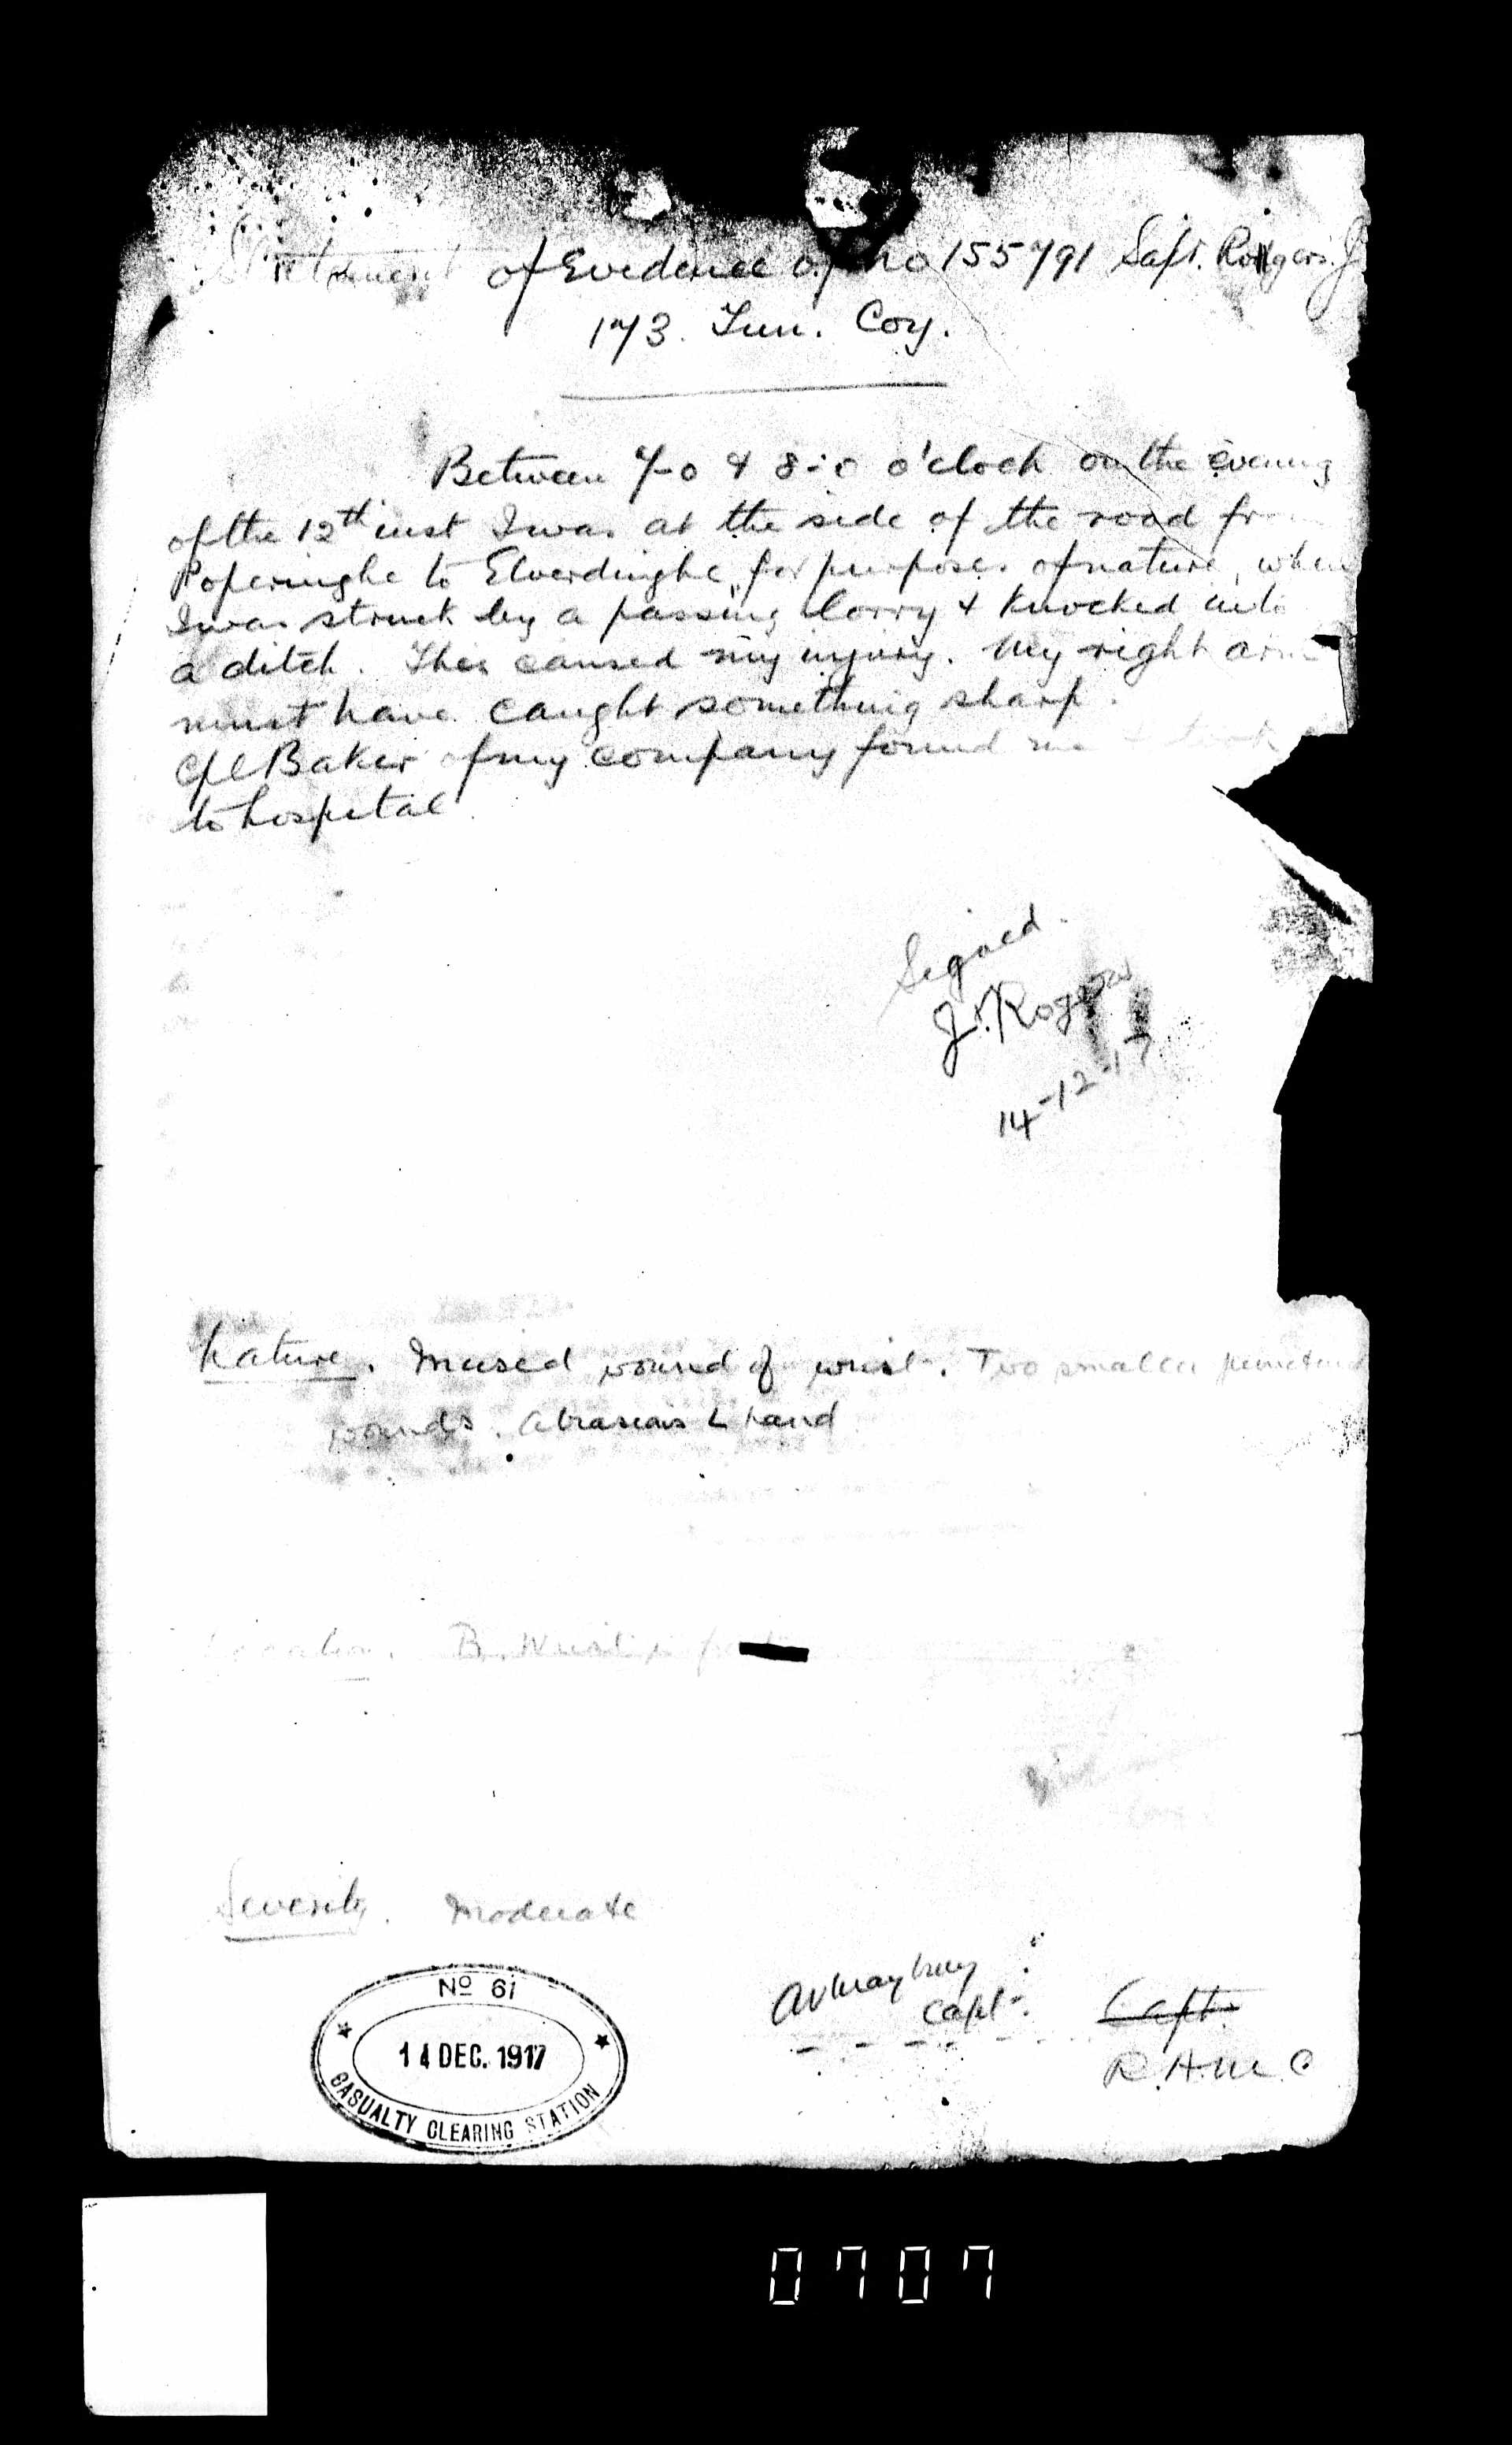 Statement of Evidence of No 155791 Sapr. Rodgers. J
173. Tun. Coy.
Between 7-0 & 8-0 o'clock on the evening
of the 12th inst I was at the side of the road from
Poperinghe to Elverdinghe for purposes of nature, when
I was struck by a passing lorry & knocked into
a ditch. This caused my injury. My right arm
must have caught something sharp.
Cpl Baker of my company found me & took
to hospital.
Signed.
J. Rogers
14-12-17
Nature. Incised wound of wrist. Two smaller
wounds. Abrasions L hand
Location.
Severity. Moderate
Capt.
Capt.
R.A.M.C
No 61
14 DEC. 1917
CASUALTY CLEARING STATION
0707